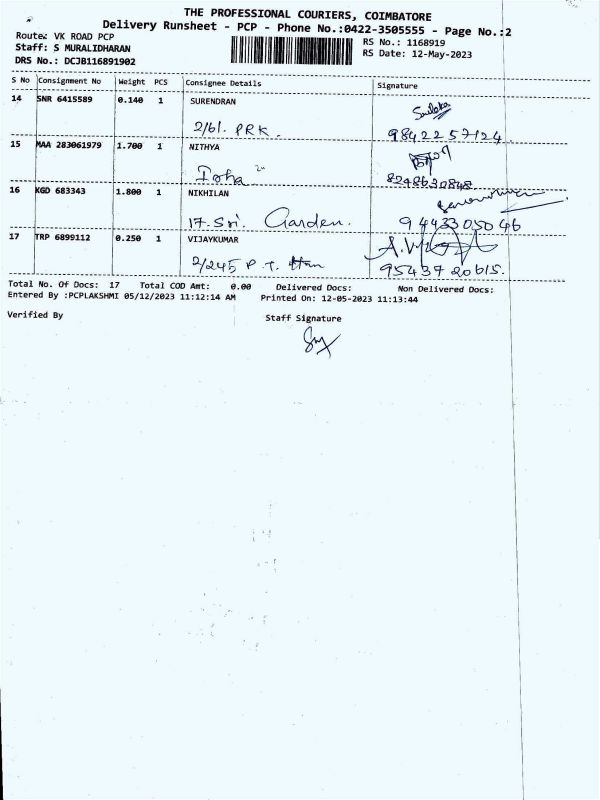 THE PROFESSIONAL COURIERS, COIMBATORE
Delivery Runsheet - PCP - Phone No.:0422-3505555 - Page No.:2
Route: VK ROAD PCP
Staff: S MURALIDHARAN
DRS No.: DCJB116891902
RS No.: 1168919
RS Date: 12-May-2023
S No Consignment No Weight PCS Consignee Details Signature
14 SNR 6415589 0.140 1 SURENDRAN
2/61. PRK. 98422 57124
15 MAA 283061979 1.700 1 NITHYA
8248630848
16 KGD 683343 1.800 1 NIKHILAN
17. Sri. Garden. 94433 05046
17 TRP 6899112 0.250 1 VIJAYKUMAR
2/245 P.T. 95437 20615.
Total No. Of Docs: 17 Total COD Amt: 0.00 Delivered Docs: Non Delivered Docs:
Entered By :PCPLAKSHMI 05/12/2023 11:12:14 AM Printed On: 12-05-2023 11:13:44
Verified By Staff Signature